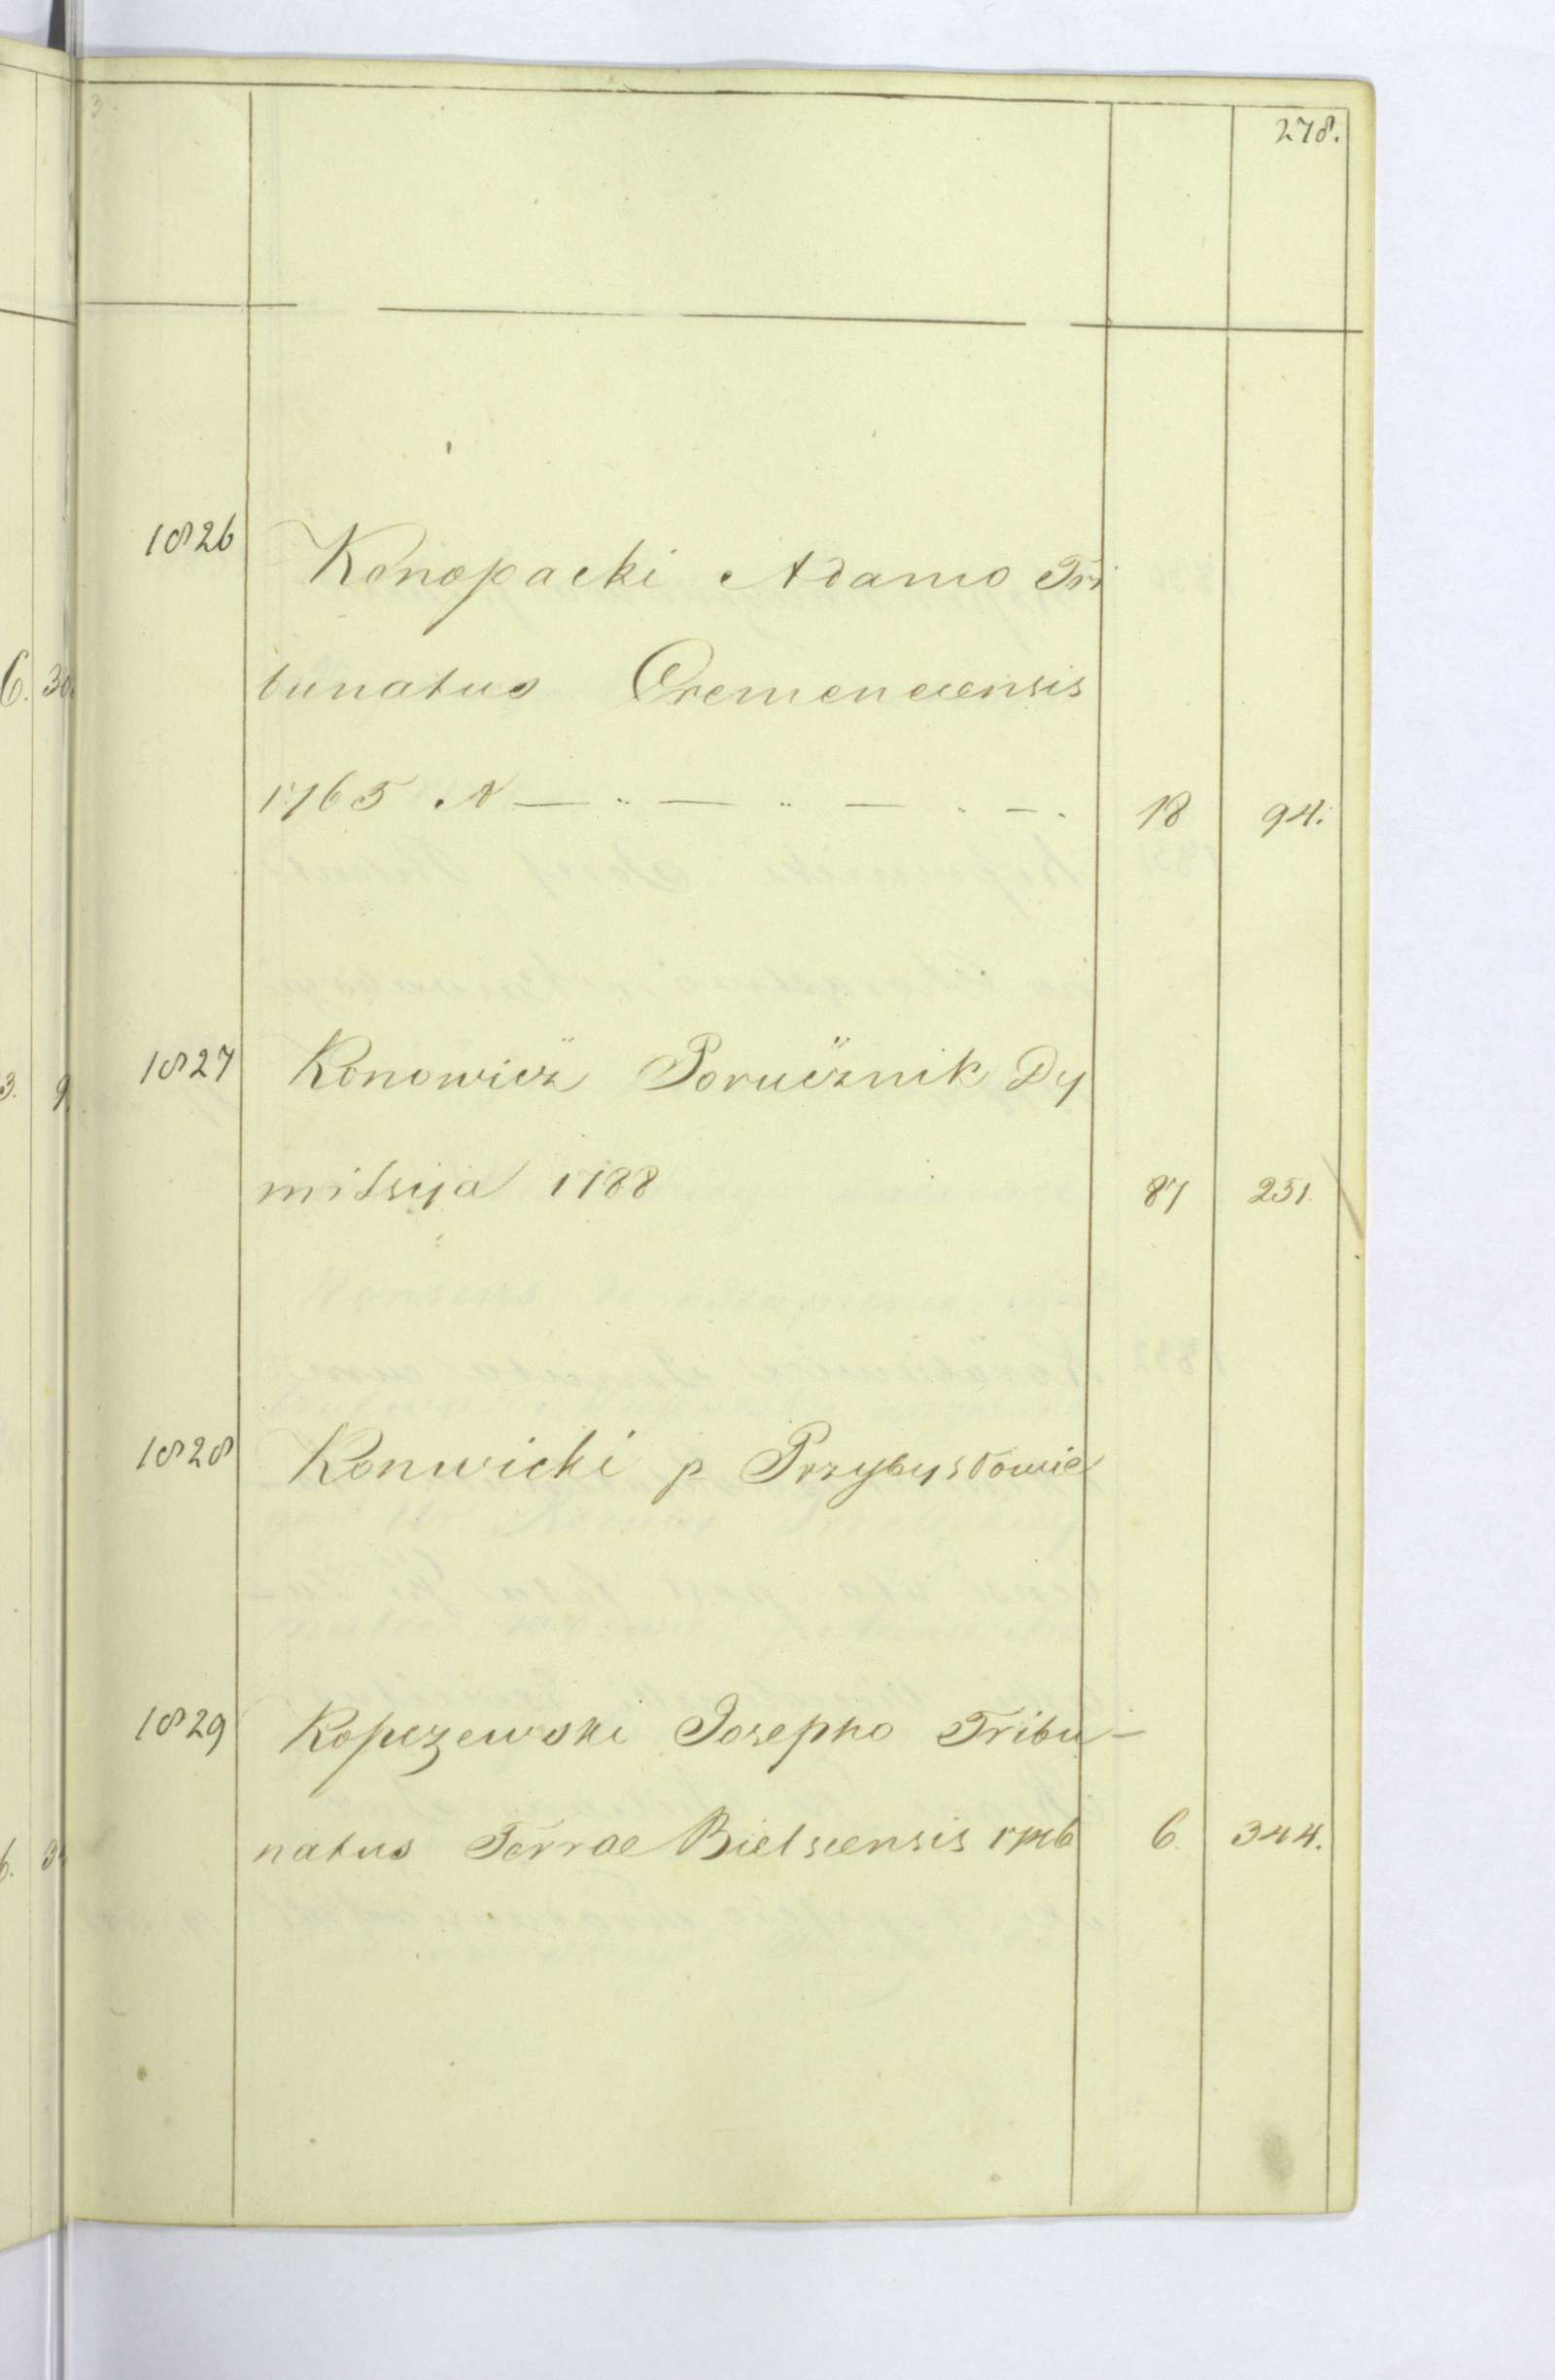 278.
1826 Konopacki Adamo Tri
bunatus Cremenecensis
1765 N — .. — .. — . — . 18 94.
1827 Konowicz Porucznik Dy
missya 1788 87 251.
1828 Konwicki p Przybysłowie
1829 Kopczewski Josepho Tribu-
natus Terrae Bielscensis 6. 344.